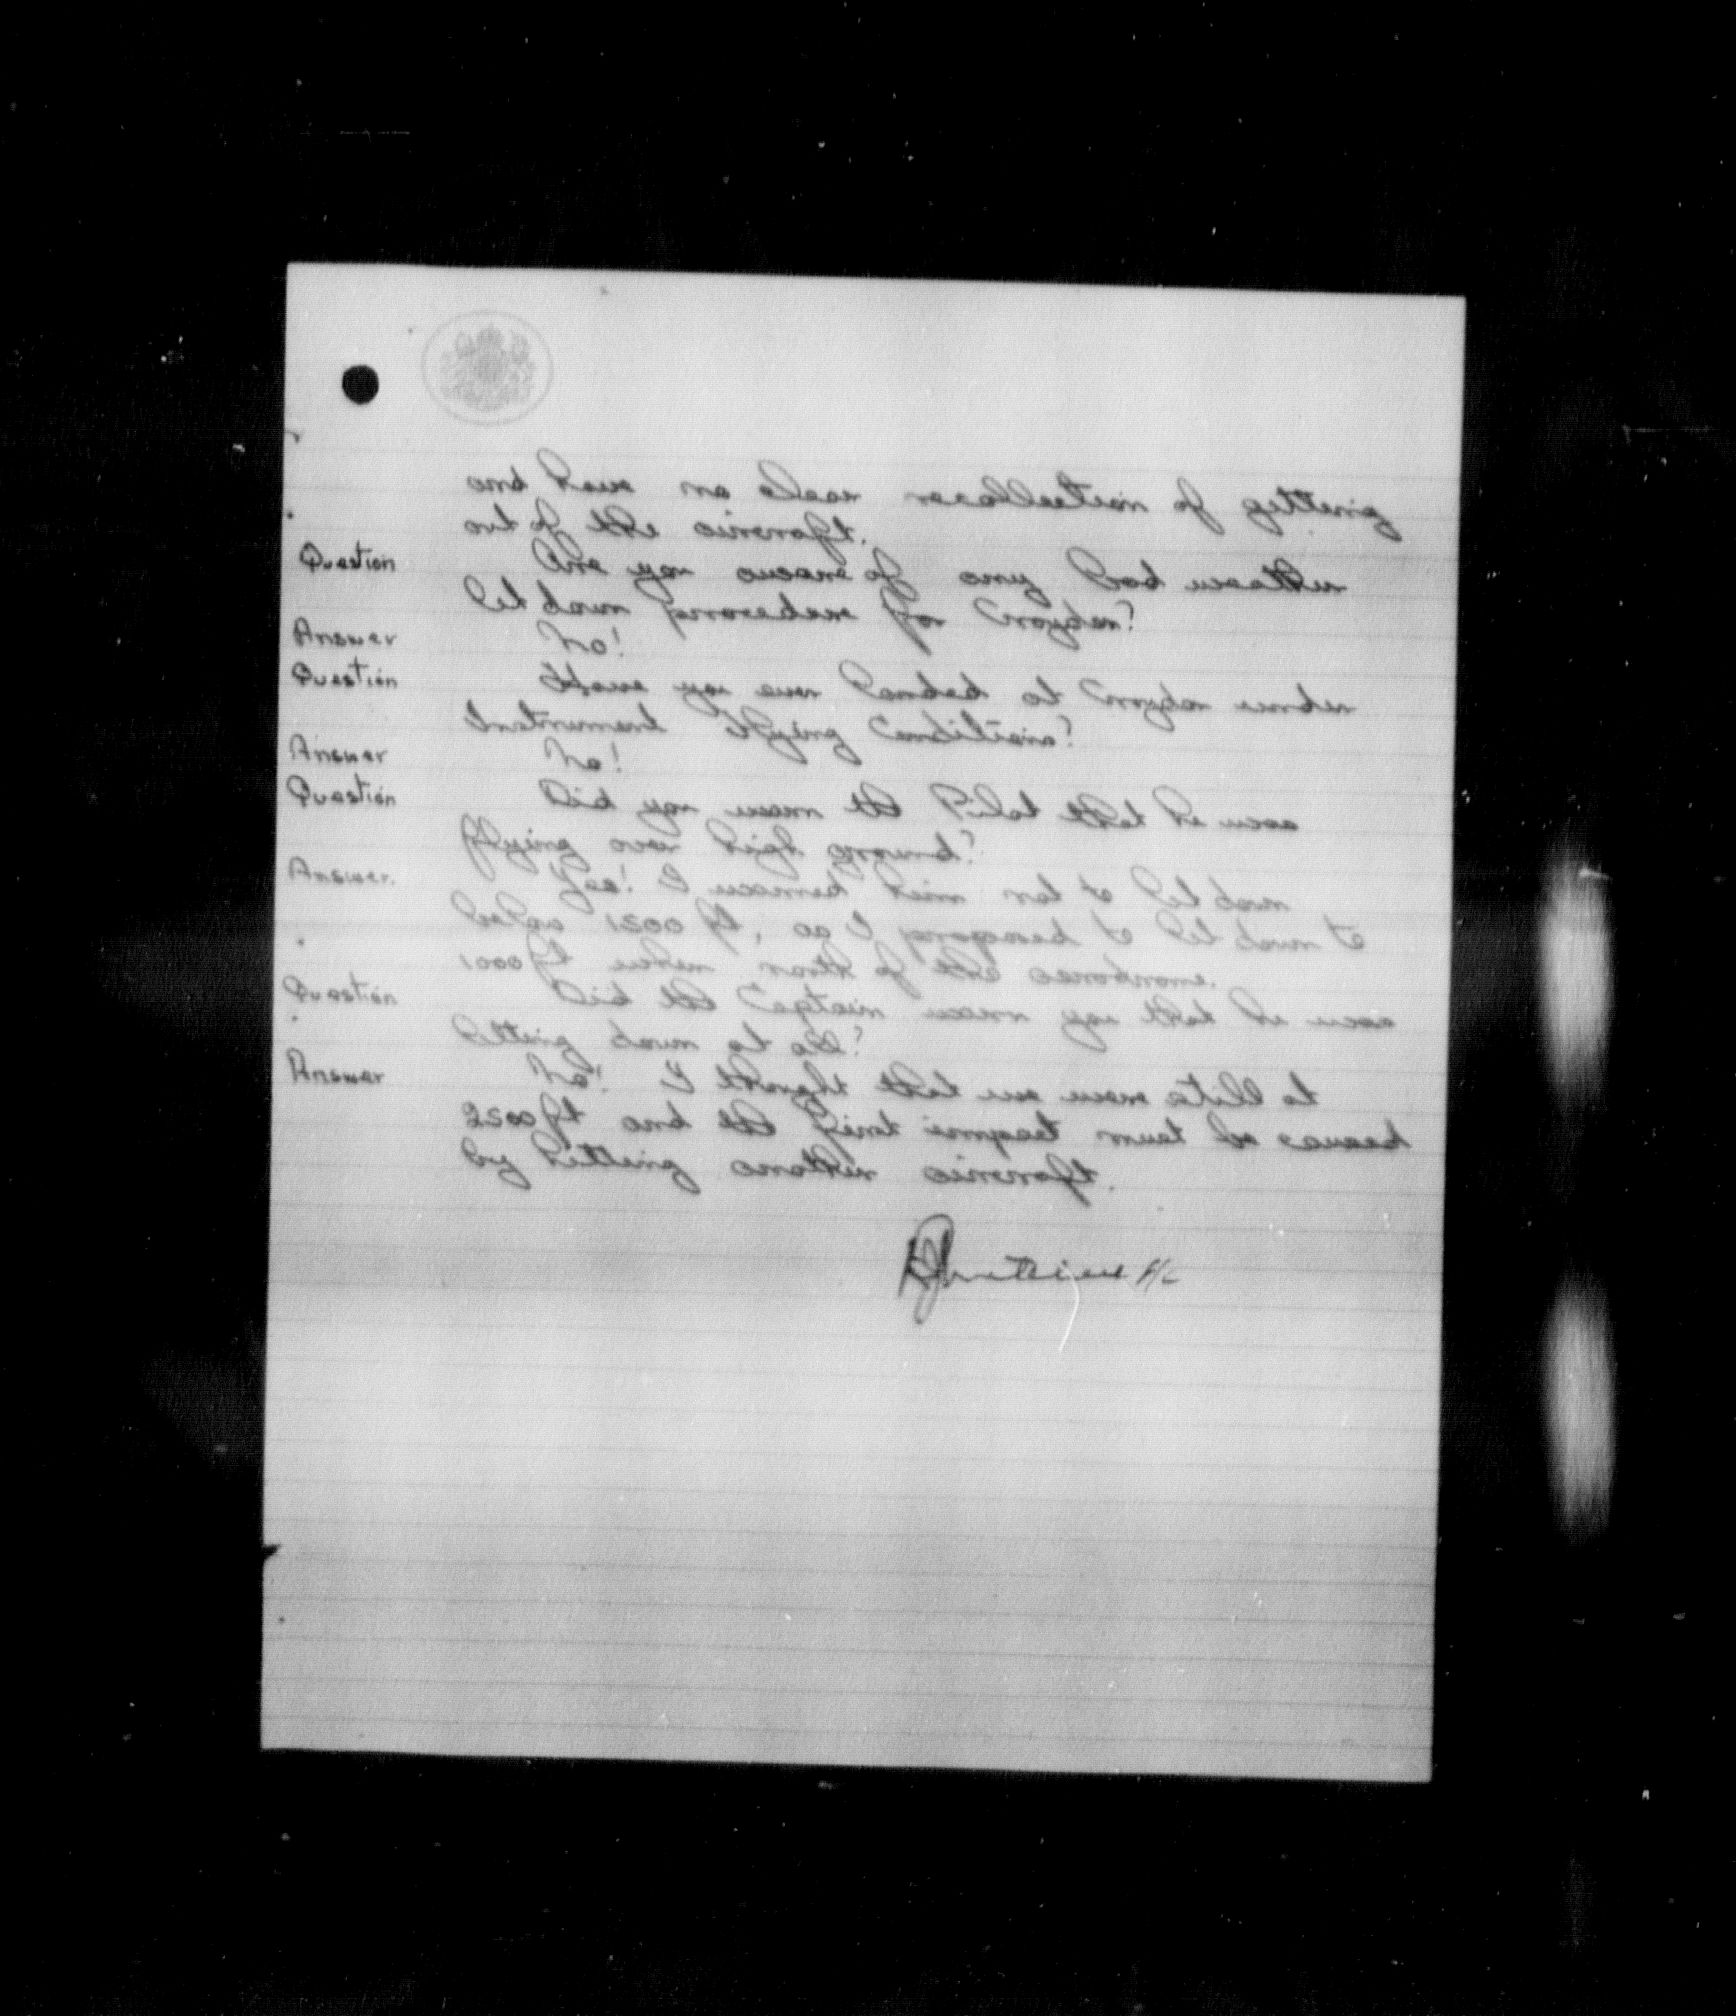 and have no clear recollection of getting
out of the aircraft.
Question Are you aware of any bad weather
let down procedure for Croydon?
Answer No!
Question Have you ever landed at Croydon under
Instrument Flying Conditions?
Answer No!
Question Did you warn the Pilot that he was
flying over high ground?
Answer. Yes! I warned him not to let down
below 1500 ft, as I proposed to let down to
1000 ft when north of the aerodrome.
Question Did the Captain warn you that he was
letting down to
Answer No! I thought that we were still at
2500 ft and the first impact must be caused
by hitting another aircraft.